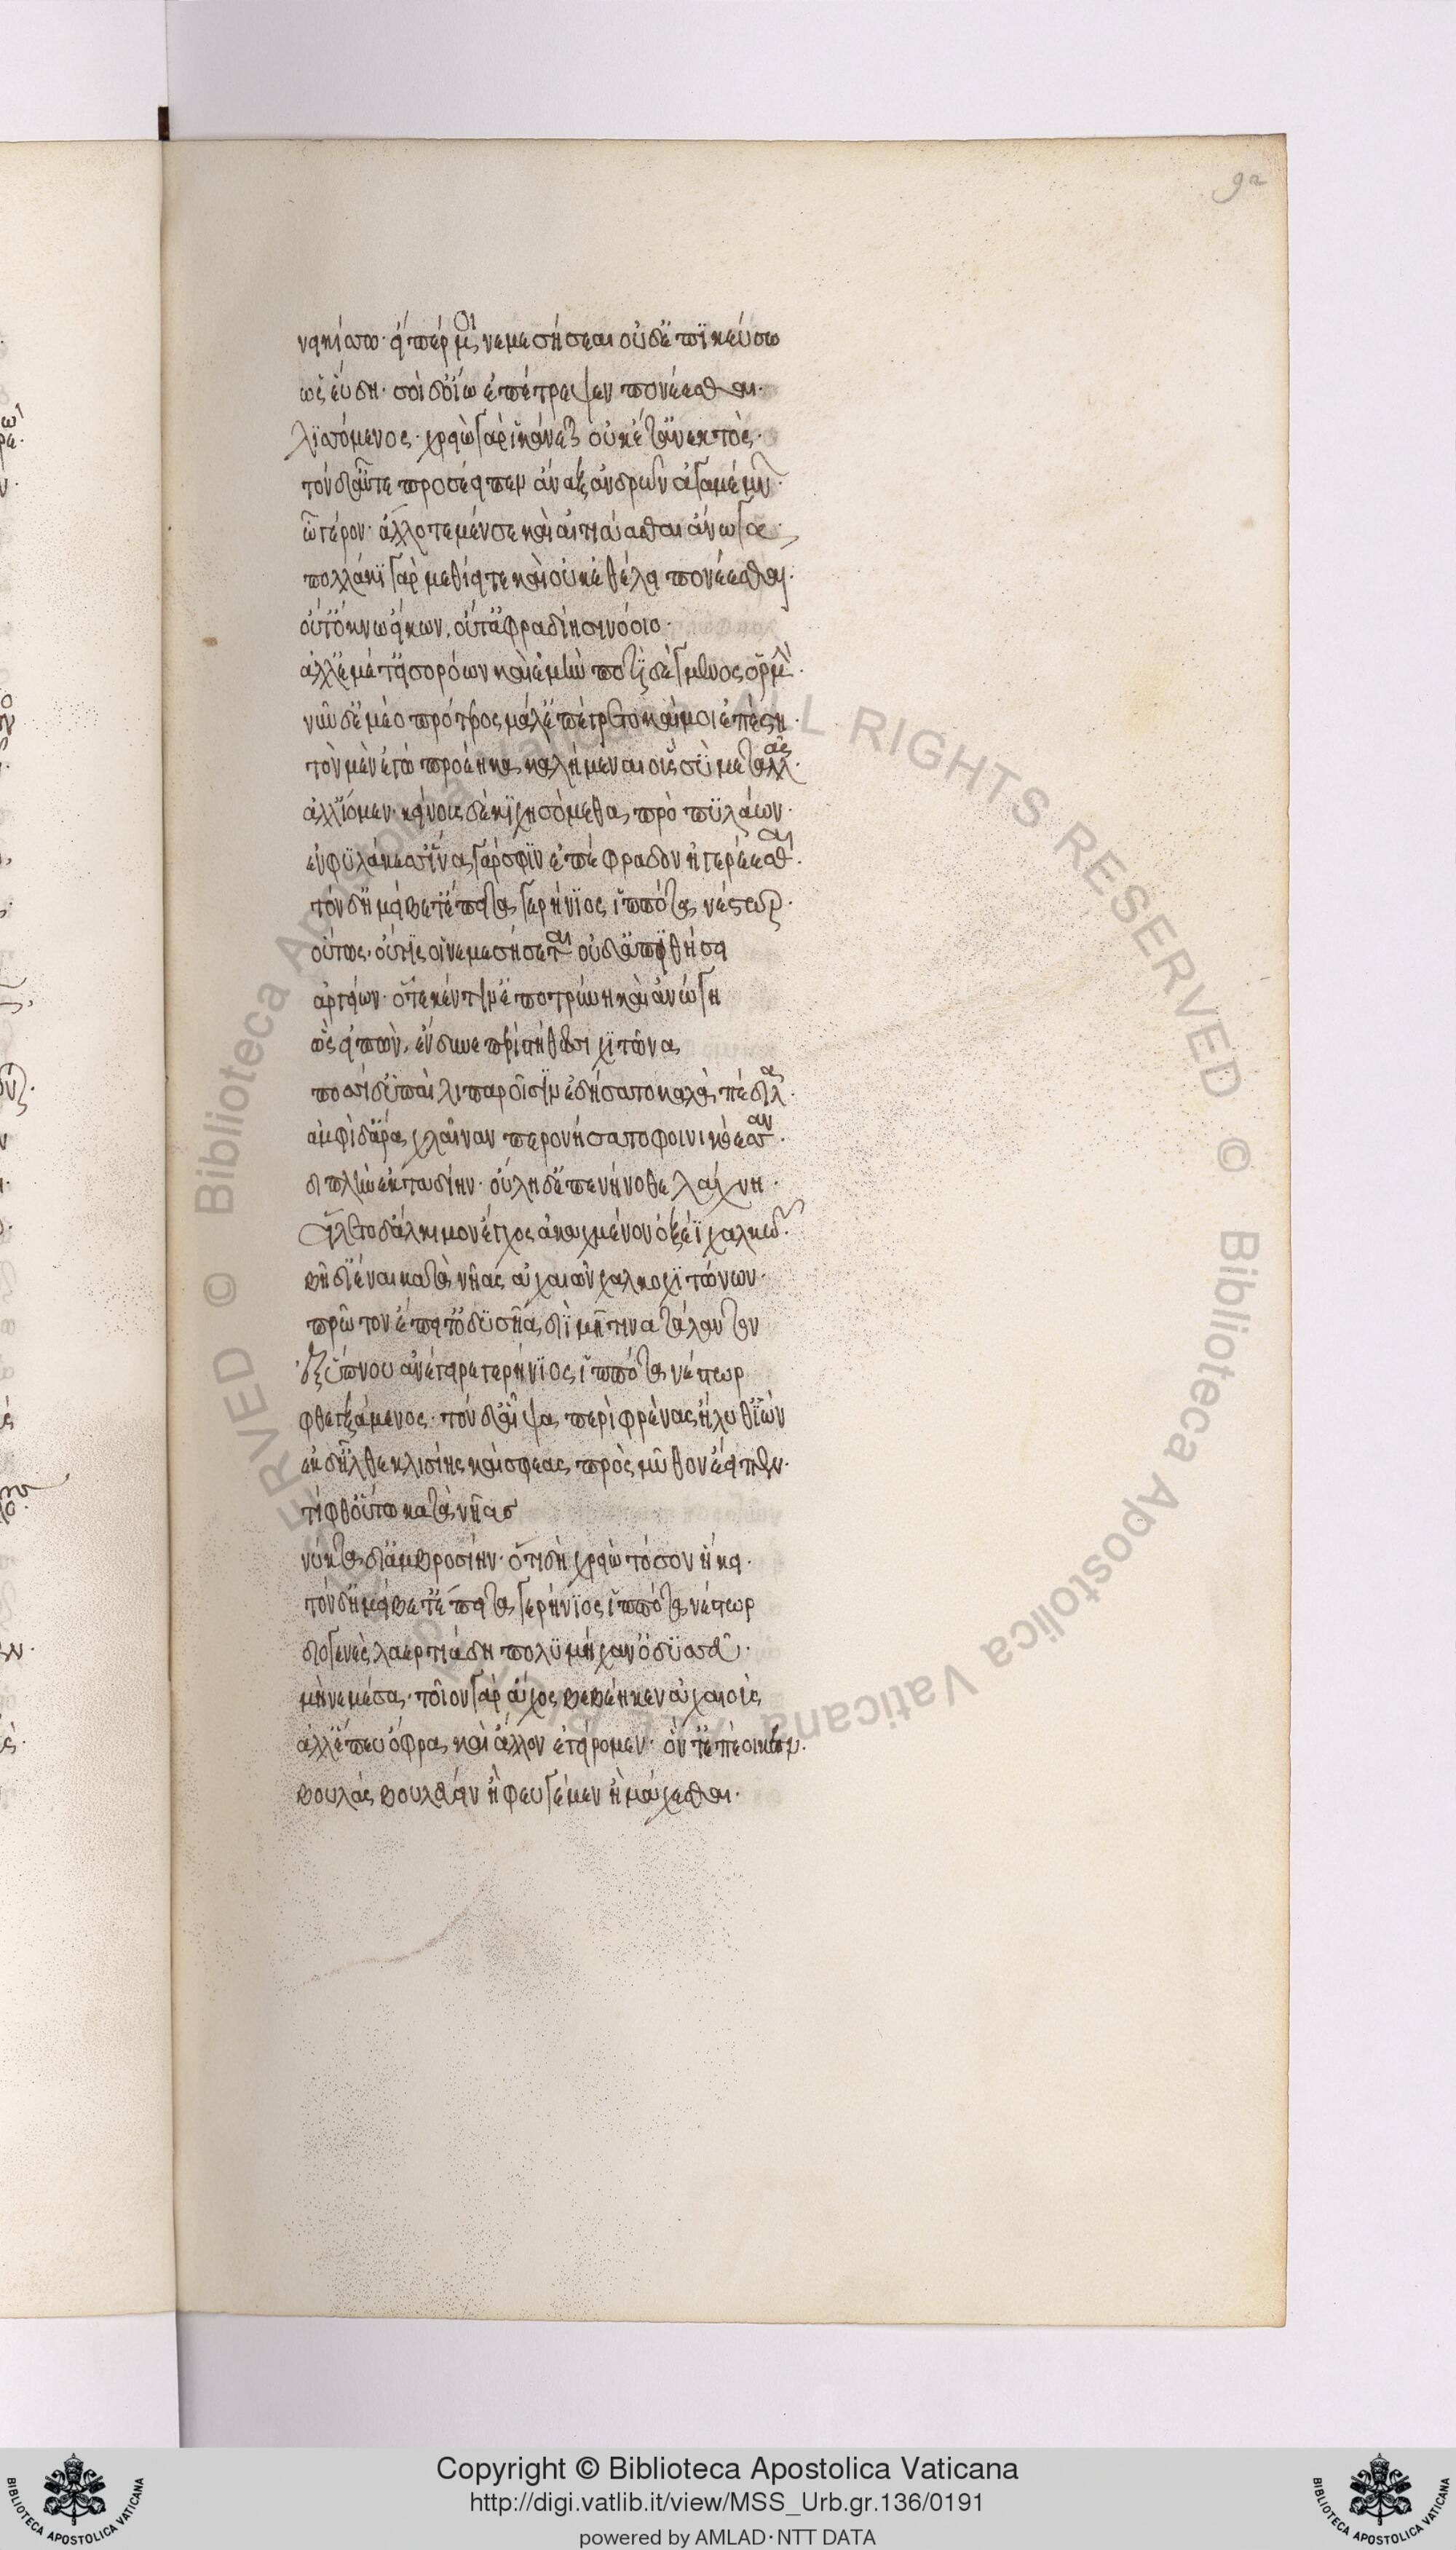 νεικέσω· εἴ πέρ μοι νεμεσήσεαι οὐδ' ἐπϊκεύσω
ὡς εὕδη· σοὶ δ' οἴω ἐπέτρεψεν πονέεσθαι·
λϊσσόμενος· χρειὼ γὰρ ἱκάνεται οὐκέτ' ἀνεκτὸς·
τὸν δ' αὖτε προσέειπεν ἄναξ ἀνδρῶν ἀγαμέμνων·
ὦ γέρον· ἄλλοτε μέν σε καὶ αἰτιάασθαι ἄνωγα·
πολλάκϊ γὰρ μεθίει τε καὶ οὐκ ἐθέλει πονέεσθαι·
οὔτ' ὄκνω εἴκων, οὔτ' ἀφραδίησι νόοιο·
ἀλλ' ἐμέ τ' εἰσορόων καὶ ἐμὴν ποτϊδέγμενος ὁρμὴν·
νῦν δ' ἐμέο πρότερος μάλ' ἐπέγρετο καί μοι ἐπέστη·
τὸν μὲν ἐγὼ προέηκα καλήμεναι οὓς σὺ μεταλλᾶς·
ἀλλ' ἴομεν· κείνοις δὲ κϊχησόμεθα πρὸ πϋλάων·
ἐν φϋλάκεσσ' ἵνα γάρ σφϊν ἐπέφραδον ἠγερέεσθαι·
τὸν δ' ἠμείβετ' ἔπειτα γερήνϊος ἱππότα νέστωρ·
οὕτως· οὔτϊς οἱ νεμεσήσεται οὐδ' ἀπϊθήσει
ἀργείων· ὅτε κέν τιν' ἐποτρύνη καὶ ἀνώγη
ὣς εἰπὼν, ἔνδυνε περὶ στήθεσσι χϊτῶνα
ποσσὶ δ' ὑπαὶ λιπαροῖσϊν ἐδήσατο καλὰ πέδιλα·
ἀμφὶ δ' ἄρα χλαῖναν περονήσατο φοινικόεσσαν·
διπλὴν ἐκταδίην· οὔλη δ' ἐπενήνοθε λάχνη·
εἵλετο δ' ἄλκιμον ἔγχος ἀκαχμένον ὀξέϊ χαλκῶ·
βῆ δ' ἰέναι κατὰ νῆας ἀχαιῶν χαλκοχϊτώνων·
πρῶτον ἔπειτ' ὀδϋσῆα διῒ μῆτιν ἀτάλαντον
ἐξ ὕπνου ἀνέγειρε γερήνϊος ἱππότα νέστωρ
φθεγξάμενος· τὸν δ' αἶψα περὶ φρένας ἤλυθ' ἰών
ἐκ δ' ἦλθε κλισίης καὶ σφεας πρὸς μῦθον ἔειπεν·
τίφθ' οὕτω κατὰ νῆασ
νύκτα δι' ἀμβροσίην· ὅτι δὴ χρειὼ τόσον ἥκει·
τὸν δ' ἠμείβετ' ἔπειτα γερήνϊος ἱππότα νέστωρ
διογενὲς λαερτιάδη πολϋμήχαν' ὀδϋσσεῦ·
μὴ νεμέσα· τοῖον γὰρ ἄχος βεβίηκεν ἀχαιοὺς
ἀλλ' ἕπευ ὄφρα καὶ ἄλλον ἐγείρομεν· ὅν τ' ἐπέοικεν·
βουλὰς βουλεύειν ἢ φευγέμεν ἠὲ μάχεσθαι·
92
Copyright © Biblioteca Apostolica Vaticana
http://digi.vatlib.it/view/MSS_Urb.gr.136/0191
powered by AMLAD·NTT DATA